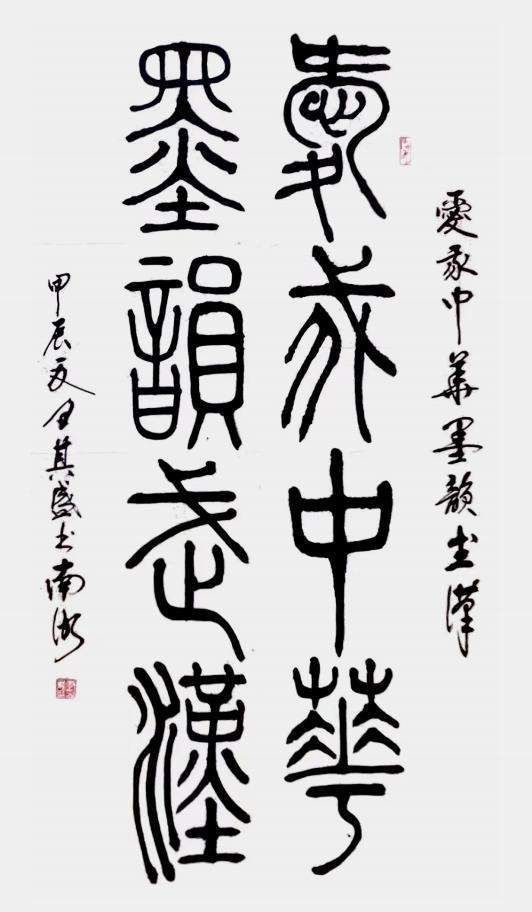 愛我中華墨韻武漢
愛我中華
墨韻武漢
甲辰夏月其盛书南湖